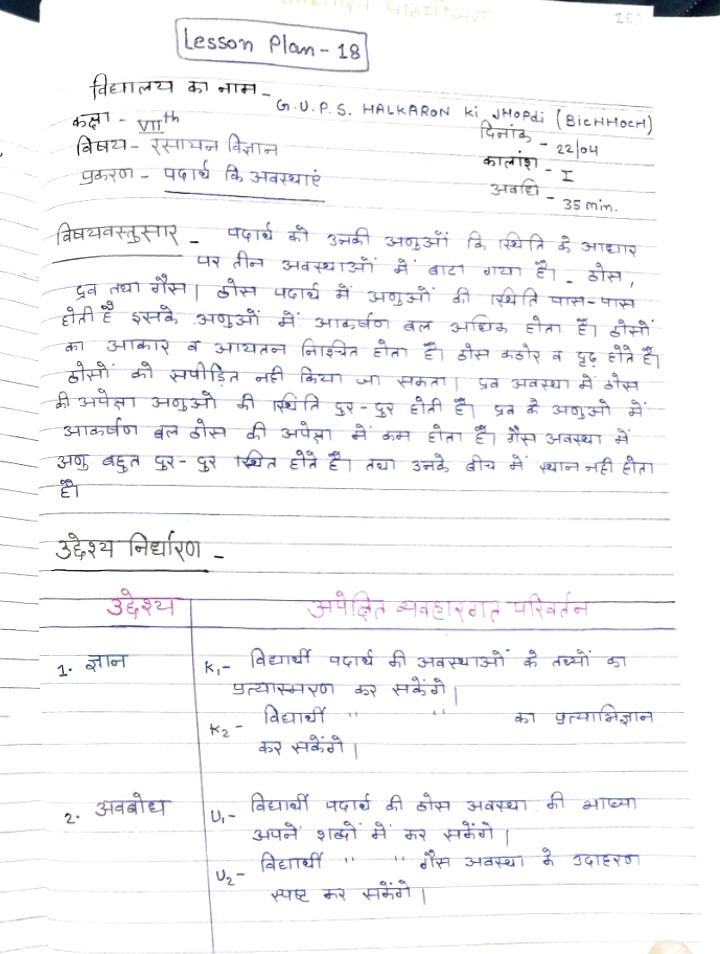 Lesson Plan - 18
विद्यालय का नाम - G.U.P.S. HALKARON Ki JHOPdi (BICHHOCH)
कक्षा - VIIth
दिनांक - 22/04
विषय - रसायन विज्ञान
कालांश - I
प्रकरण - पदार्थ कि अवस्थाएं
अवधि - 35 min.
विषयवस्तुसार - पदार्थ को उनकी अणुओं कि स्थिति के आधार
पर तीन अवस्थाओं में बाटा गया है। - ठोस,
द्रव तथा गैस। ठोस पदार्थ में अणुओं की स्थिति पास-पास
होती है इसके अणुओं में आकर्षण बल अधिक होता है। ठोसों
का आकार व आयतन निश्चित होता है। ठोस कठोर व दृढ़ होते है।
ठोसों को सपीड़ित नही किया जा सकता। द्रव अवस्था में ठोस
की अपेक्षा अणुओ की स्थिति दुर-दुर होती है। द्रव के अणुओ में
आकर्षण बल ठोस की अपेक्षा में कम होता है। गैस अवस्था में
अणु बहुत दुर-दुर स्थित होते है। तथा उनके बीच में स्थान नही होता
है।
उद्देश्य निर्धारण -
उद्देश्य अपेक्षित व्यवहारगत परिवर्तन
1. ज्ञान K1- विद्यार्थी पदार्थ की अवस्थाओं के तथ्यों का
प्रत्यास्मरण कर सकेंगे।
K2- विद्यार्थी " " का प्रत्याभिज्ञान
कर सकेंगे।
2. अवबोध U1- विद्यार्थी पदार्थ की ठोस अवस्था की
अपने शब्दों में कर सकेंगे।
U2- विद्यार्थी " " गैस अवस्था के उदाहरण
स्पष्ट कर सकेंगे।